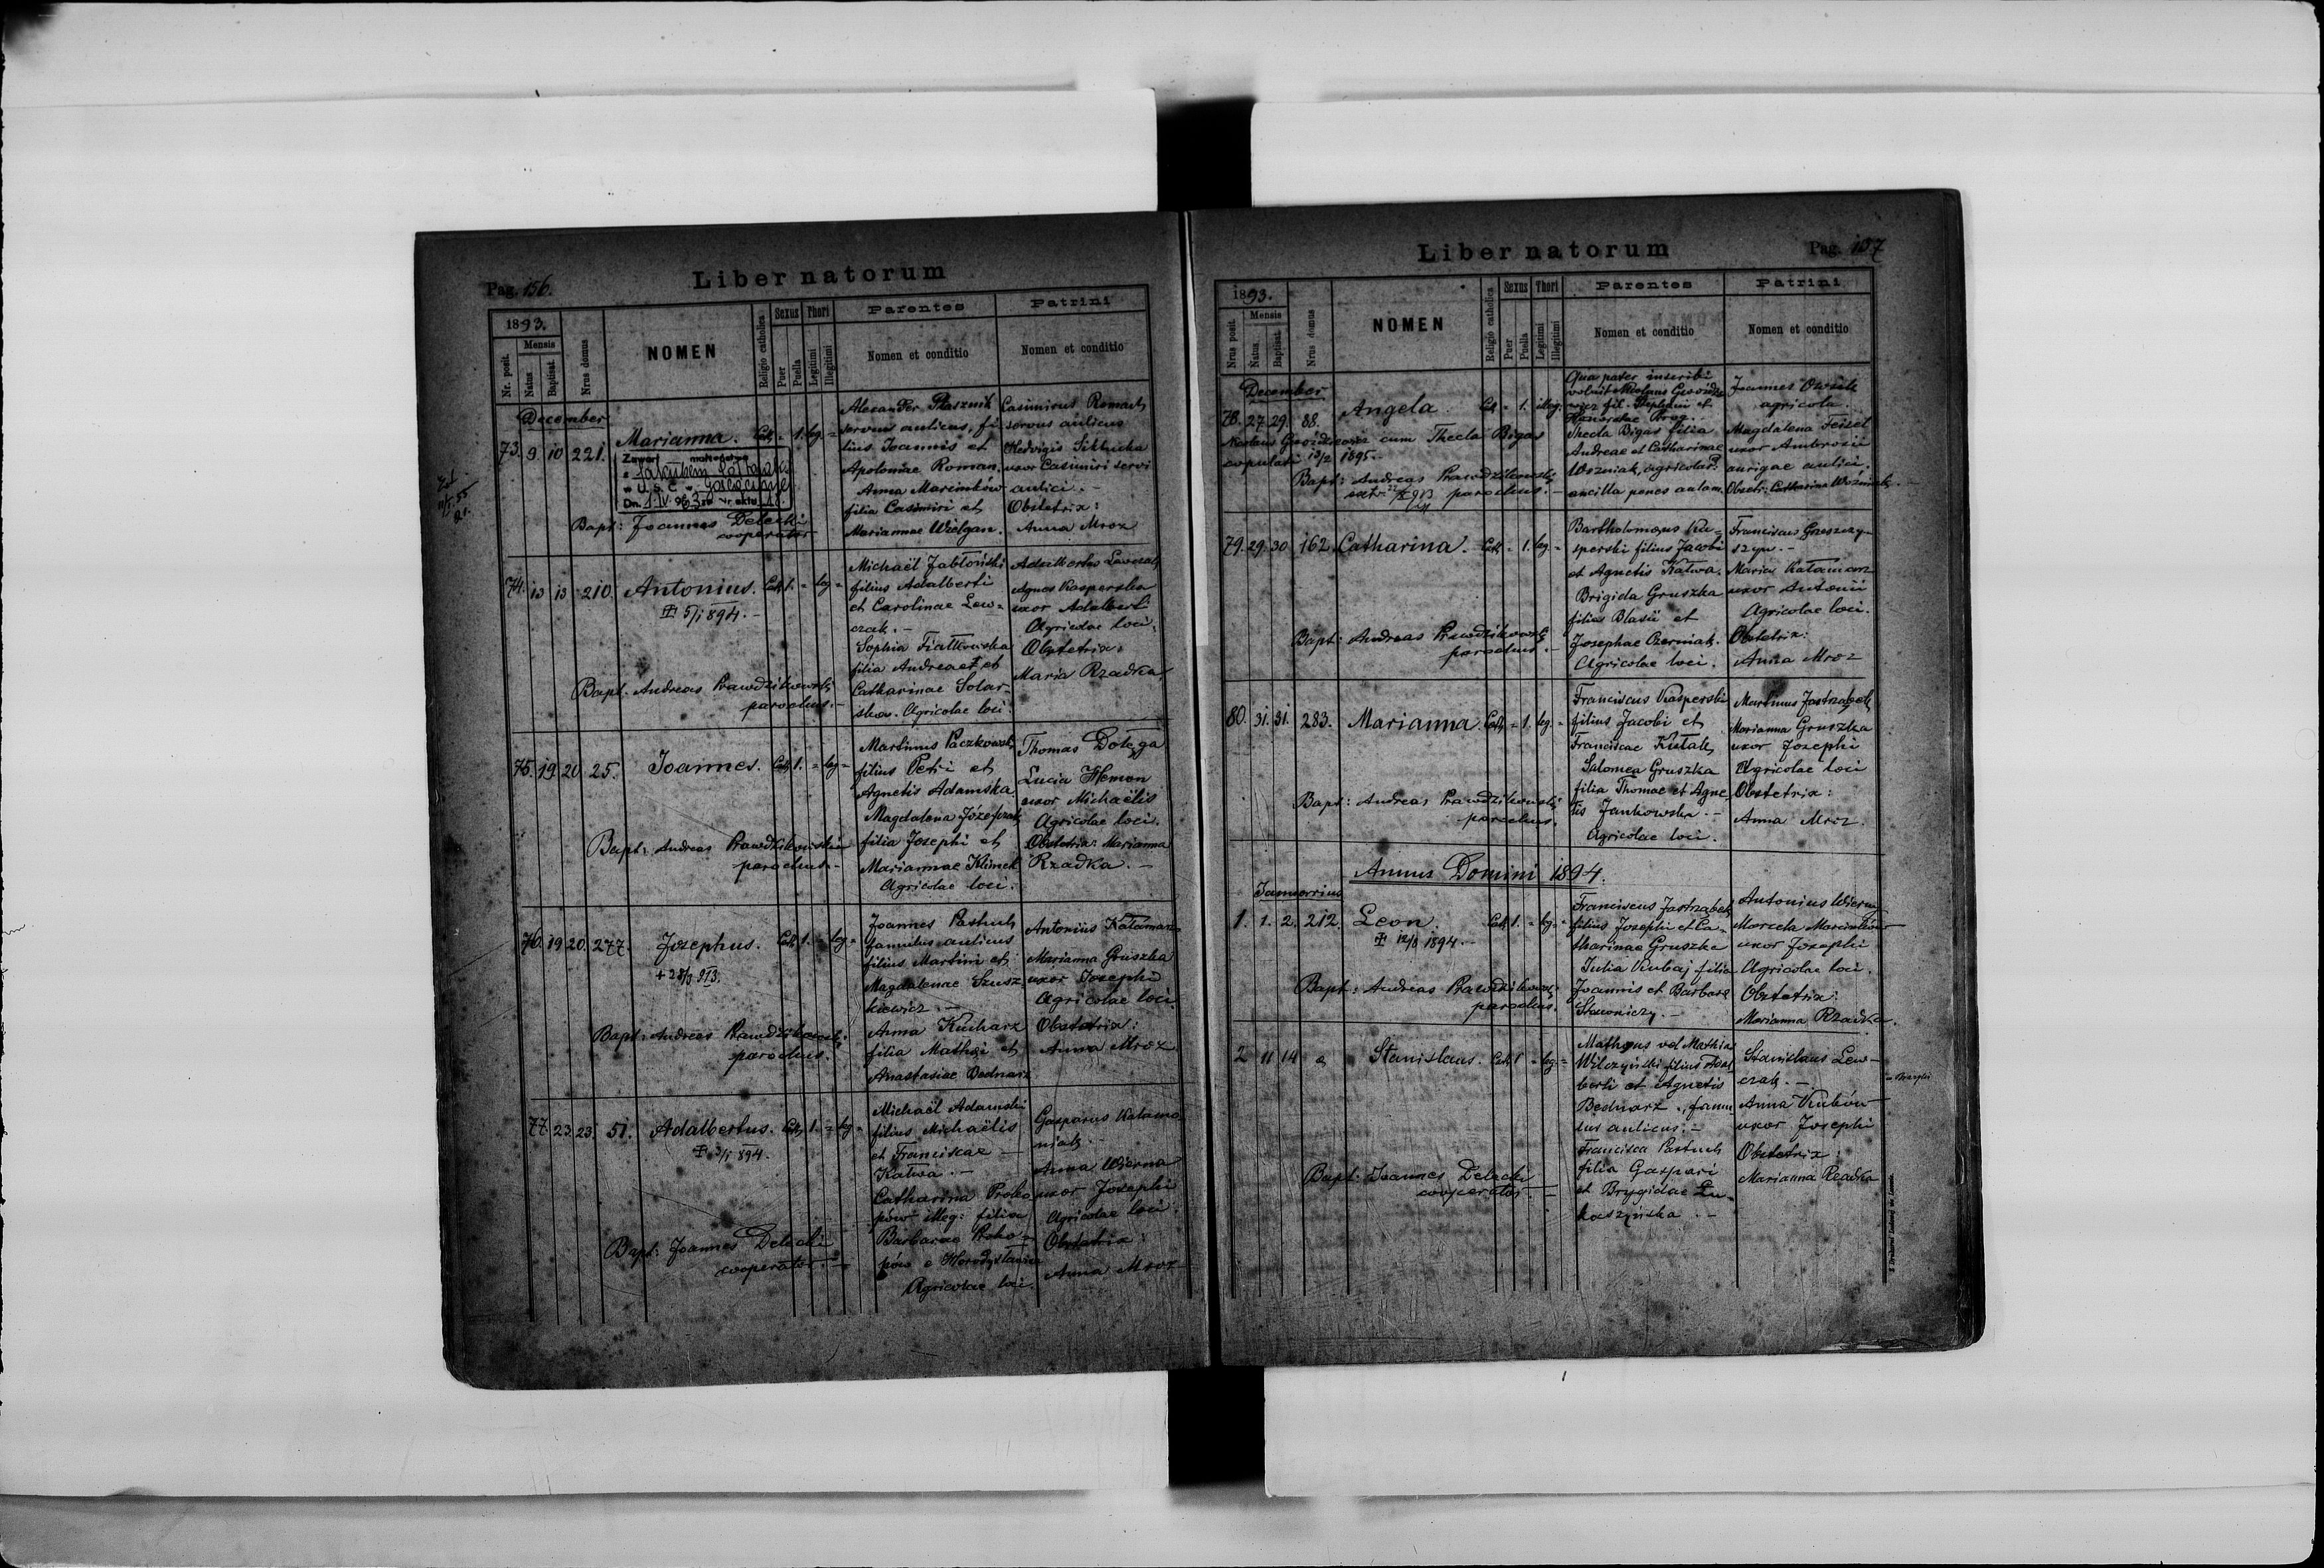 Pag. 156.
Liber natorum
1893.
Nr. posit.
Mensis
Natus
Baptisat.
Nrus domus
NOMEN
Religio catholica
Sexus
Puer
Puella
Thori
Legitimi
Illegitimi
Parentes
Nomen et conditio
Patrini
Nomen et conditio
December
73. 9. 10 221. Marianna. Cath. - 1. leg. =
Zawarł małżeństwo
z Jakubem
w U.S.C. w
Dn. 1.IV.963
Bapt: Joannes Delecki
cooperator
Alexander Ptasznik
servus aulicus, fi-
lius Joannis et
Apoloniae Roman.
Anna Marcinków
filia Casimiri et
Mariannae Wielgan.
Casimirus Romach
servus aulicus
Hedvigis
uxor Casimiri servi
aulici. -
Obstetrix:
Anna Mroz
74. 13 13 210. Antonius. Cath. 1. = leg =
5/1 894. -
Bapt. Andreas Prawdzikowski
parochus. -
Michaël Jabłoński
filius Adalberti
et Carolinae Lew=
czak. -
Sophia Fiałkowska
filia Andreae et
Catharinae Solar-
ska. Agricolae loci
Adalbertus Lewczak
Agnes Kasperska
uxor Adalberti
Agricolae loci.
Obstetrix:
Maria Rzadka
75. 19 20 25. Joannes. Cath. 1. = leg =
Bapt: Andreas Prawdzikowski
parochus. -
Martinus Paczkowski
filius Petri et
Agnetis Adamska.
Magdalena Józefczak
filia Josephi et
Mariannae Klimek
Agricolae loci.
Thomas Dołęga
Lucia Hemon
uxor Michaëlis
Agricolae loci.
Obstetrix: Marianna
Rzadka. -
76. 19 20. 277. Josephus. Cath. 1. = leg =
+ 28/3 913.
Bapt: Andreas Prawdzikowski
parochus.
Joannes Pastuch
famulus aulicus
filius Martini et
Magdalenae Szusz
kiewicz -
Anna Kucharz
filia Mathæi et
Anastasiae Bednarz
Antonius Kałamarz
Marianna Gruszka
uxor Josephi
Agricolae loci
Obstetrix:
Anna Mroz.
77. 23. 23. 51. Adalbertus. Cath. 1. = leg =
894.
Bapt: Joannes Delecki
cooperator. -
Michaël Adamski
filius Michaëlis
et Franciscae -
Katwa. -
Catharina Proko
pów illeg: filia
Barbarae Proko=
pów e
Agricolae loci.
Gasparus Kałama
niak. -
Anna Wierna
uxor Josephi
Agricolae loci.
Obstetrix:
Anna Mroz
Liber natorum
Pag. 157
1893.
Nrus posit.
Mensis
Natus
Baptisat.
Nrus domus
NOMEN
Religio catholica
Sexus
Puer
Puella
Thori
Legitimi
Illegitimi
Parentes
Nomen et conditio
Patrini
Nomen et conditio
December
78. 27. 29. 88. Angela. Cath. = 1. illeg.
cum Thecla Bigas
copulati 13/2 1895.
Bapt: Andreas Prawdzikowski
parochus. -
Qua pater inscribi
voluit
fil. Stephani et
Thecla Bigas filia
Andreae et Catharinae
Wozniak, agricolar.
ancilla penes aulam.
Joannes
agricola.
Magdalena Feizel
uxor Ambrosii
aurigae aulici.
Obstetr. Catharina Wozniak.
79. 29. 30. 162. Catharina. Cath. = 1. leg. =
Bapt: Andreas Prawdzikowski
parochus. -
Bartholomæus Ka-
sperski filius Jacobi
et Agnetis Katwa.
Brigida Gruszka
filia Blasii et
Josephae Czerniak.
Agricolae loci.
Franciscus Grzeszczy-
szyn. -
Maria Kałamarz
uxor Antonii
Agricolae loci.
Obstetrix:
Anna Mroz
80. 31. 31. 283. Marianna. Cath. = 1. leg. =
Bapt: Andreas Prawdzikowski
parochus.
Franciscus Kasperski
filius Jacobi et
Franciscae
Salomea Gruszka
filia Thomae et Agne
tis Jankowska. -
Agricolae loci.
Martinus Jastrzabek
Marianna Gruszka
uxor Josephi
Agricolae loci
Obstetrix:
Anna Mroz.
Annus Domini 1894.
Januarius
1. 1. 2. 212. Leon. Cath. 1. = leg. =
12/3 1894. -
Bapt: Andreas Prawdzikowski
parochus.
Franciscus Jastrzabek
filius Josephi et Ca-
tharinae Gruszka
Julia Kubaj filia
Joannis et Barbarae
Stawniczy. -
Antonius Wierny
Morela Marcinków
uxor Josephi
Agricolae loci.
Obstetrix:
Marianna Rzadka.
2 11 14 Stanislaus. Cath. 1 = leg. =
Bapt: Joannes Delecki
cooperator. -
Mathæus vel Mathias
Wilczyński filius Adal
berti et Agnetis
Bednarz. famu
lus aulicus. -
Francisca Pastuch
filia Gaspari
et Brygidae Łu-
kaszyńska. -
Stanislaus Lew-
czak. -
Anna Kubów
uxor Josephi
Obstetrix:
Marianna Rzadka